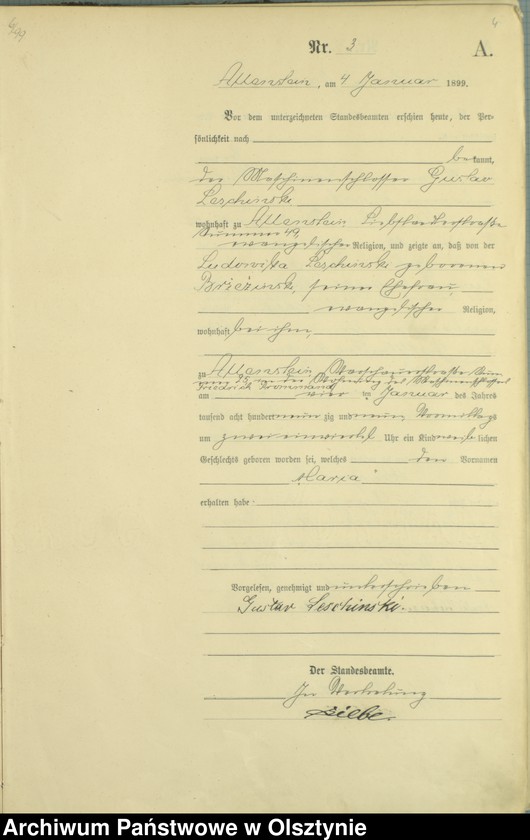 4
Nr. 3
A.
Allenstein, am 4 Januar 1899.
Vor dem unterzeichneten Standesbeamten erschien heute, der Per-
sönlichkeit nach
bekannt,
der Maschinenschlosser Gustav
Leschinski
wohnhaft zu Allenstein, Liebstaedterstrasse
Nummer 49,
evangelischer Religion, und zeigte an, daß von der
Ludowika Leschinski geborenen
seiner Ehefrau,
evangelischer Religion,
wohnhaft bei ihm,
zu Allenstein, Warschauerstraße Num
in der Wohnung des
Friedrich
am vier ten Januar des Jahres
tausend acht hundert neun zig und neun, Vormittags
um zwei einviertel Uhr ein Kind weib lichen
Geschlechts geboren worden sei, welches den Vornamen
"Maria"
erhalten habe.
Vorgelesen, genehmigt und unterschrieben
Gustav Leschinski.
Der Standesbeamte.
In Vertretung
Archiwum Państwowe w Olsztynie